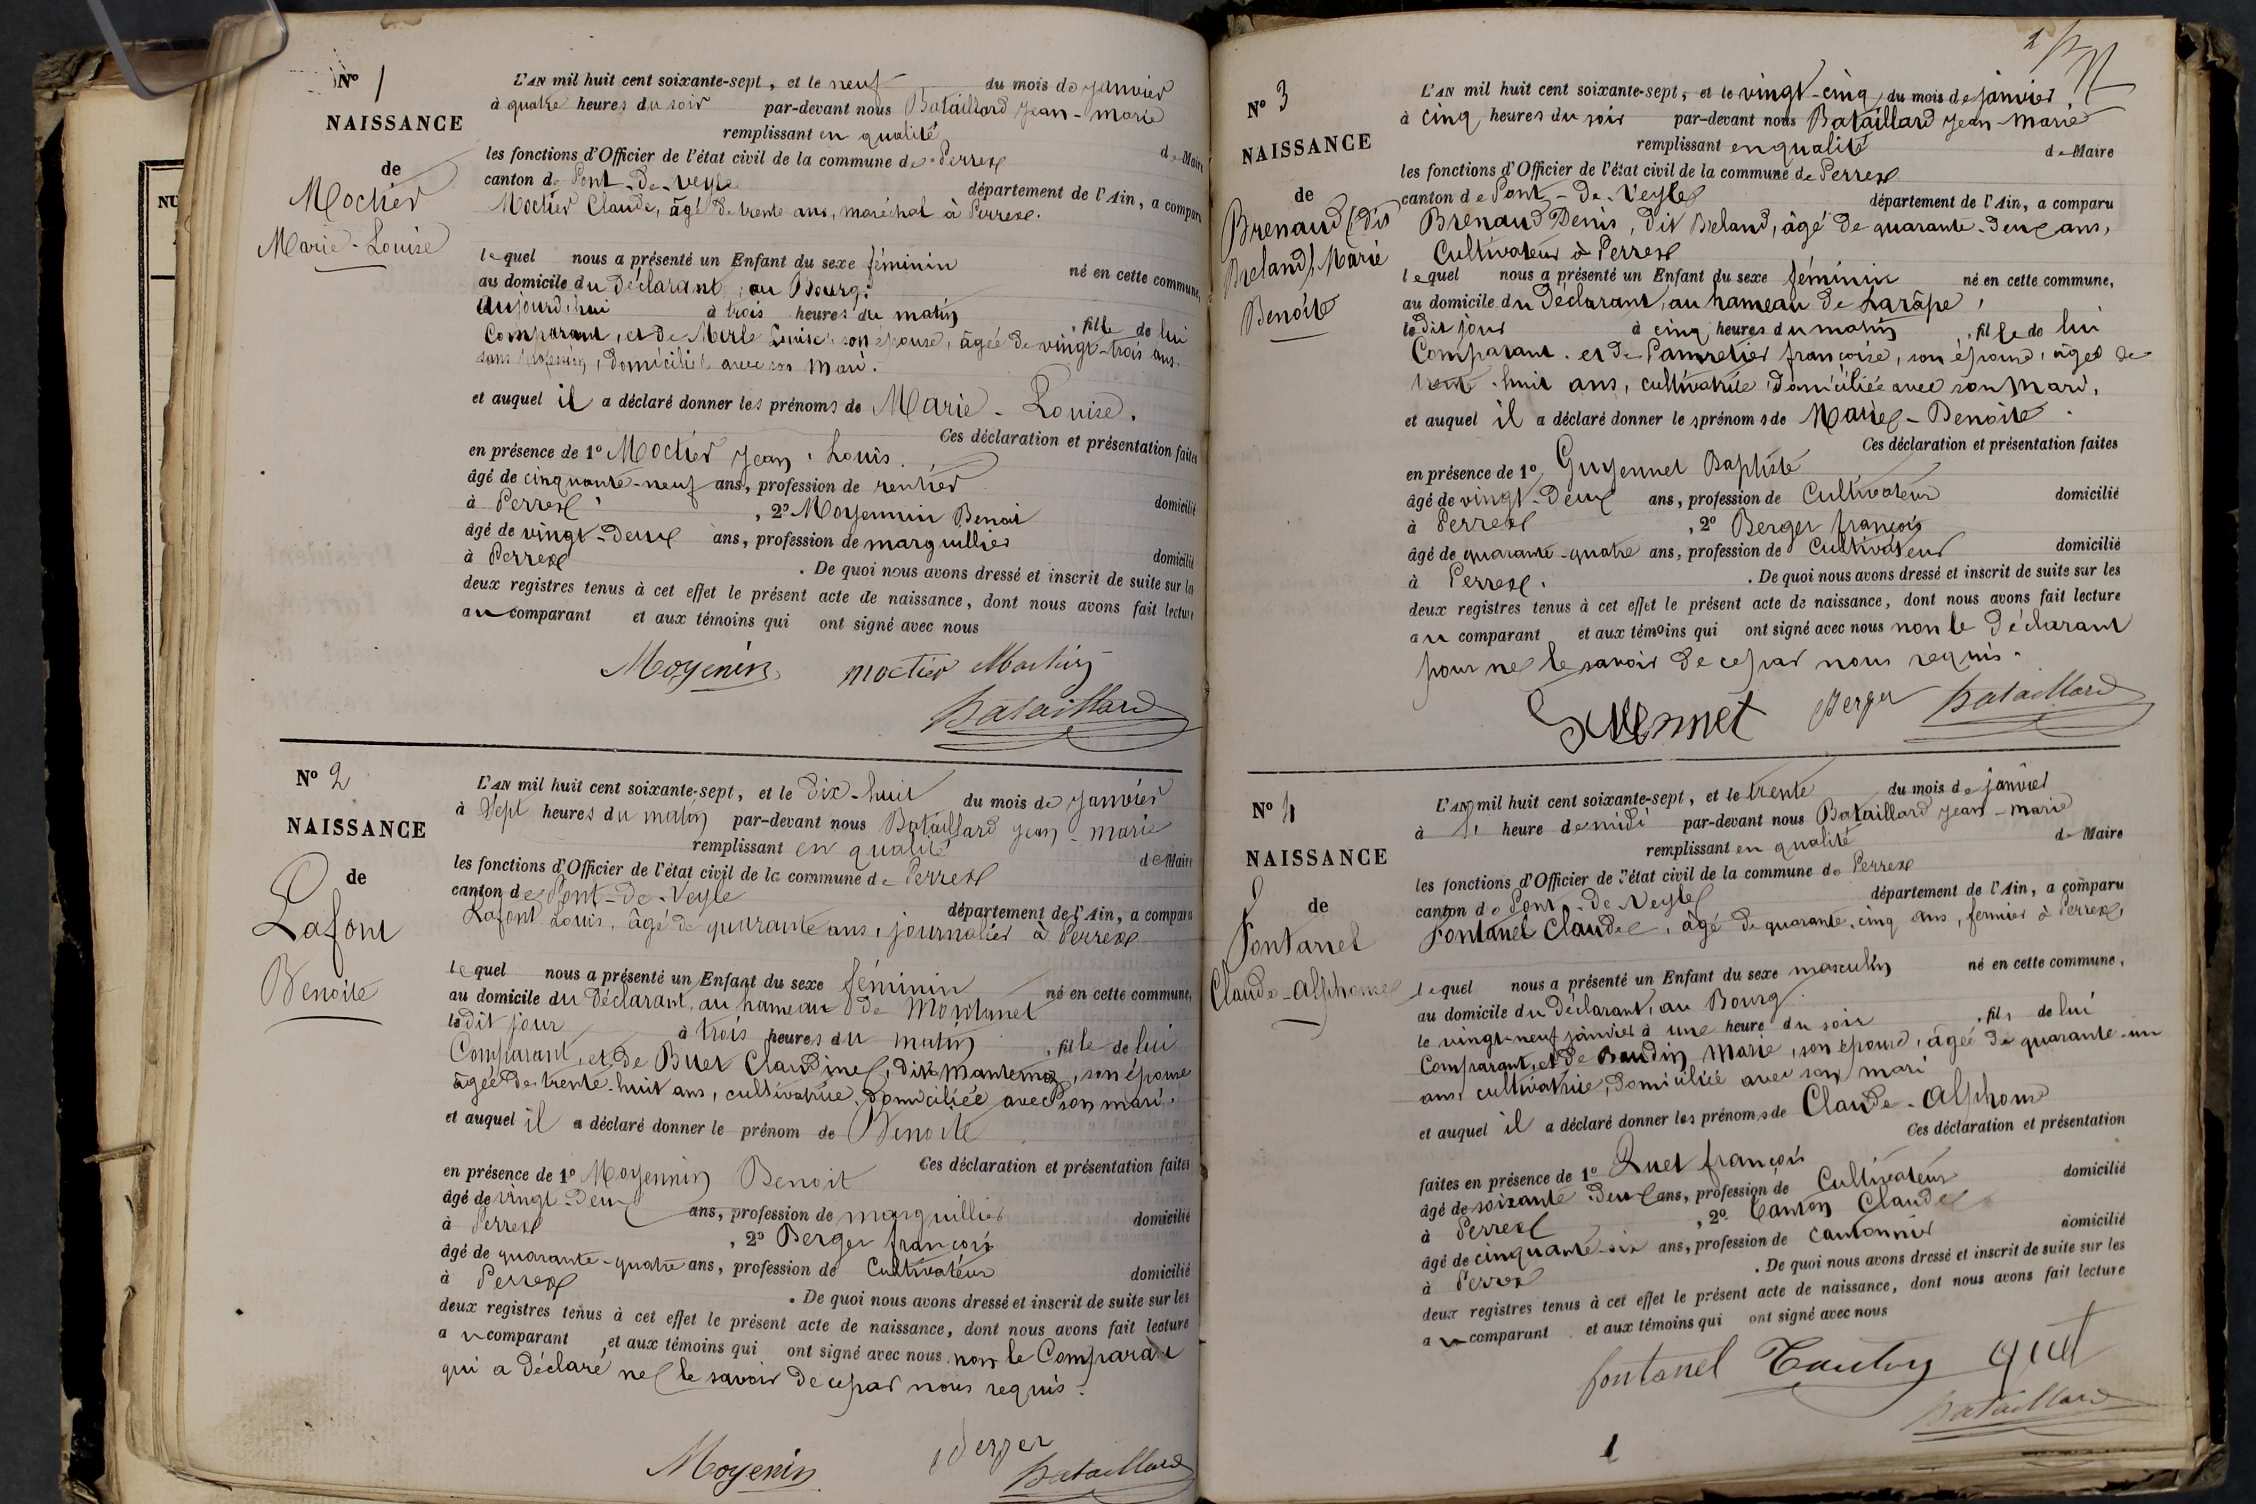 N° 1
NAISSANCE
de
Moctier
Marie-Louise
L'AN mil huit cent soixante-sept, et le neuf du mois de janvier
à quatre heures du soir par-devant nous Bataillard Jean-Marie
remplissant en qualité de Maire
les fonctions d'Officier de l'état civil de la commune de Perrex
canton de Pont-de-Veyle département de l'Ain, a comparu
Moctier Claude, âgé de trente ans, maréchal à Perrex.
lequel nous a présenté un Enfant du sexe féminin né en cette commune,
au domicile du Déclarant, au Bourg.
aujourd'hui à trois heures du matin, fille de lui
Comparant, et de Merle Louise son épouse, âgée de vingt-trois ans.
sans profession, domiciliée avec son mari.
et auquel il a déclaré donner les prénoms de Marie-Louise.
Ces déclaration et présentation faites
en présence de 1° Moctier Jean-Louis
âgé de cinquante-neuf ans, profession de rentier domicilié
à Perrex, 2° Moyennin Benoit
âgé de vingt-deux ans, profession de marguillier domicilié
à Perrex. De quoi nous avons dressé et inscrit de suite sur les
deux registres tenus à cet effet le présent acte de naissance, dont nous avons fait lecture
au comparant et aux témoins qui ont signé avec nous
Moyenin moctier Moctier
Bataillard
N° 2
NAISSANCE
de
Lafont
Benoite
L'AN mil huit cent soixante-sept, et le dix-huit du mois de janvier
à Sept heures du matin par-devant nous Bataillard Jean-Marie
remplissant en qualité de Maire
les fonctions d'Officier de l'état civil de la commune de Perrex
canton de Pont-de-Veyle département de l'Ain, a comparu
Lafont Louis, âgé de quarante ans, journalier à Perrex
lequel nous a présenté un Enfant du sexe féminin né en cette commune,
au domicile du Déclarant, au hameau de Montanet
ledit jour à trois heures du matin, fille de lui
Comparant, et de Buet Claudine, dite, son épouse
âgée de trente-huit ans, cultivatrice, domiciliée avec son mari.
et auquel il a déclaré donner le prénom de Benoite
Ces déclaration et présentation faites
en présence de 1° Moyennin Benoit
âgé de vingt-deux ans, profession de marguillier domicilié
à Perrex, 2° Berger françois
âgé de quarante-quatre ans, profession de Cultivateur domicilié
à Perrex. De quoi nous avons dressé et inscrit de suite sur les
deux registres tenus à cet effet le présent acte de naissance, dont nous avons fait lecture
au comparant et aux témoins qui ont signé avec nous non le Comparant
qui a déclaré ne le savoir de ce par nous requis.
Moyenin Berger Bataillard
N° 3
NAISSANCE
de
Brenaud (dit
Breland) Marie
Benoite
L'AN mil huit cent soixante-sept, et le vingt-cinq du mois de janvier,
à cinq heures du soir par-devant nous Bataillard Jean-Marie
remplissant en qualité de Maire
les fonctions d'Officier de l'état civil de la commune de Perrex
canton de Pont-de-Veyle département de l'Ain, a comparu
Brenaud Denis, dit Breland, âgé de quarante-deux ans,
Cultivateur à Perrex
lequel nous a présenté un Enfant du sexe féminin né en cette commune,
au domicile du Déclarant, au hameau de Larâpe,
le dit jour à cinq heures du matin, fille de lui
Comparant, et de françoise, son épouse, âgée de
trente-huit ans, cultivatrice domiciliée avec son mari.
et auquel il a déclaré donner les prénoms de Marie-Benoite.
Ces déclaration et présentation faites
en présence de 1° Guyennet Baptiste
âgé de vingt-deux ans, profession de Cultivateur domicilié
à Perrex, 2° Berger françois
âgé de quarante-quatre ans, profession de Cultivateur domicilié
à Perrex. De quoi nous avons dressé et inscrit de suite sur les
deux registres tenus à cet effet le présent acte de naissance, dont nous avons fait lecture
au comparant et aux témoins qui ont signé avec nous non le Déclarant
pour ne le savoir de ce par nous requis.
Berger Bataillard
N° 4
NAISSANCE
de
Fontanel
Claude-Alphonse
L'AN mil huit cent soixante-sept, et le trente du mois de janvier
à heure de midi par-devant nous Bataillard Jean-Marie
remplissant en qualité de Maire
les fonctions d'Officier de l'état civil de la commune de Perrex
canton de Pont-de-Veyle département de l'Ain, a comparu
Fontanel Claude, âgé de quarante-cinq ans, fermier à Perrex,
lequel nous a présenté un Enfant du sexe masculin né en cette commune,
au domicile du Déclarant, au Bourg.
le vingt-neuf janvier à une heure du soir, fils de lui
Comparant, et de Baudin Marie, son épouse, âgée de quarante-un
ans, cultivatrice, domiciliée avec son mari
et auquel il a déclaré donner les prénoms de Claude-Alphonse
Ces déclaration et présentation
faites en présence de 1° Quet françois
âgé de soixante-deux ans, profession de Cultivateur domicilié
à Perrex, 2° Claude
âgé de cinquante-six ans, profession de cantonnier domicilié
à Perrex. De quoi nous avons dressé et inscrit de suite sur les
deux registres tenus à cet effet le présent acte de naissance, dont nous avons fait lecture
au comparant et aux témoins qui ont signé avec nous
fontanel quet
Bataillard